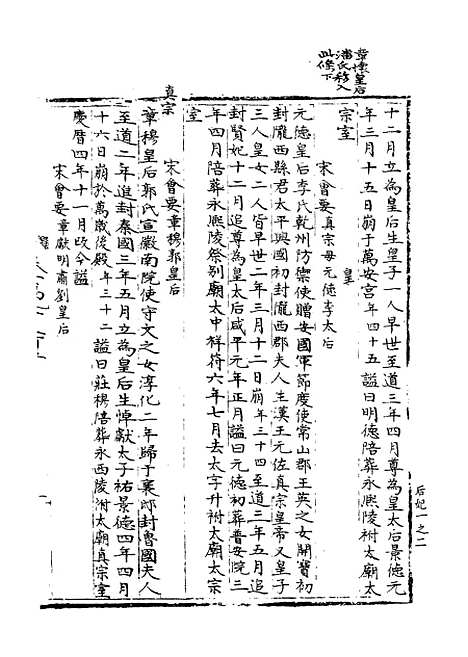 章懷皇后
潘氏移入
此條下
十二月立為皇后生皇子一人早世至道三年四月尊為皇太后景德元
年三月十五日崩于萬安宮年四十五謚曰明德陪葬永熙陵祔太廟太
宗室
皇
宋會要真宗母元德李太后
元德皇后李氏乾州防禦使贈安國軍節度使常山郡王英之女開寶初
封隴西縣君太平興國初封隴西郡夫人生漢王元佐真宗皇帝又皇子
三人皇女二人皆早世二年三月十二日崩年三十四至道三年五月追
封賢妃十二月追尊為皇太后咸平元年正月謚曰元德初葬普安院三
年四月陪葬永熙陵祭別廟太中祥符六年七月去太字升祔太廟太宗
室
真宗
宋會要章穆郭皇后
章穆皇后郭氏宣徽南院使守文之女淳化二年歸于襄邸封魯國夫人
至道二年進封秦國三年五月立為皇后生悼獻太子祐景德四年四月
十六日崩於萬歲後殿年三十二謚曰莊穆陪葬永西陵祔太廟真宗室
慶曆四年十一月改今謚
宋會要章獻明肅劉皇后
后妃一之二